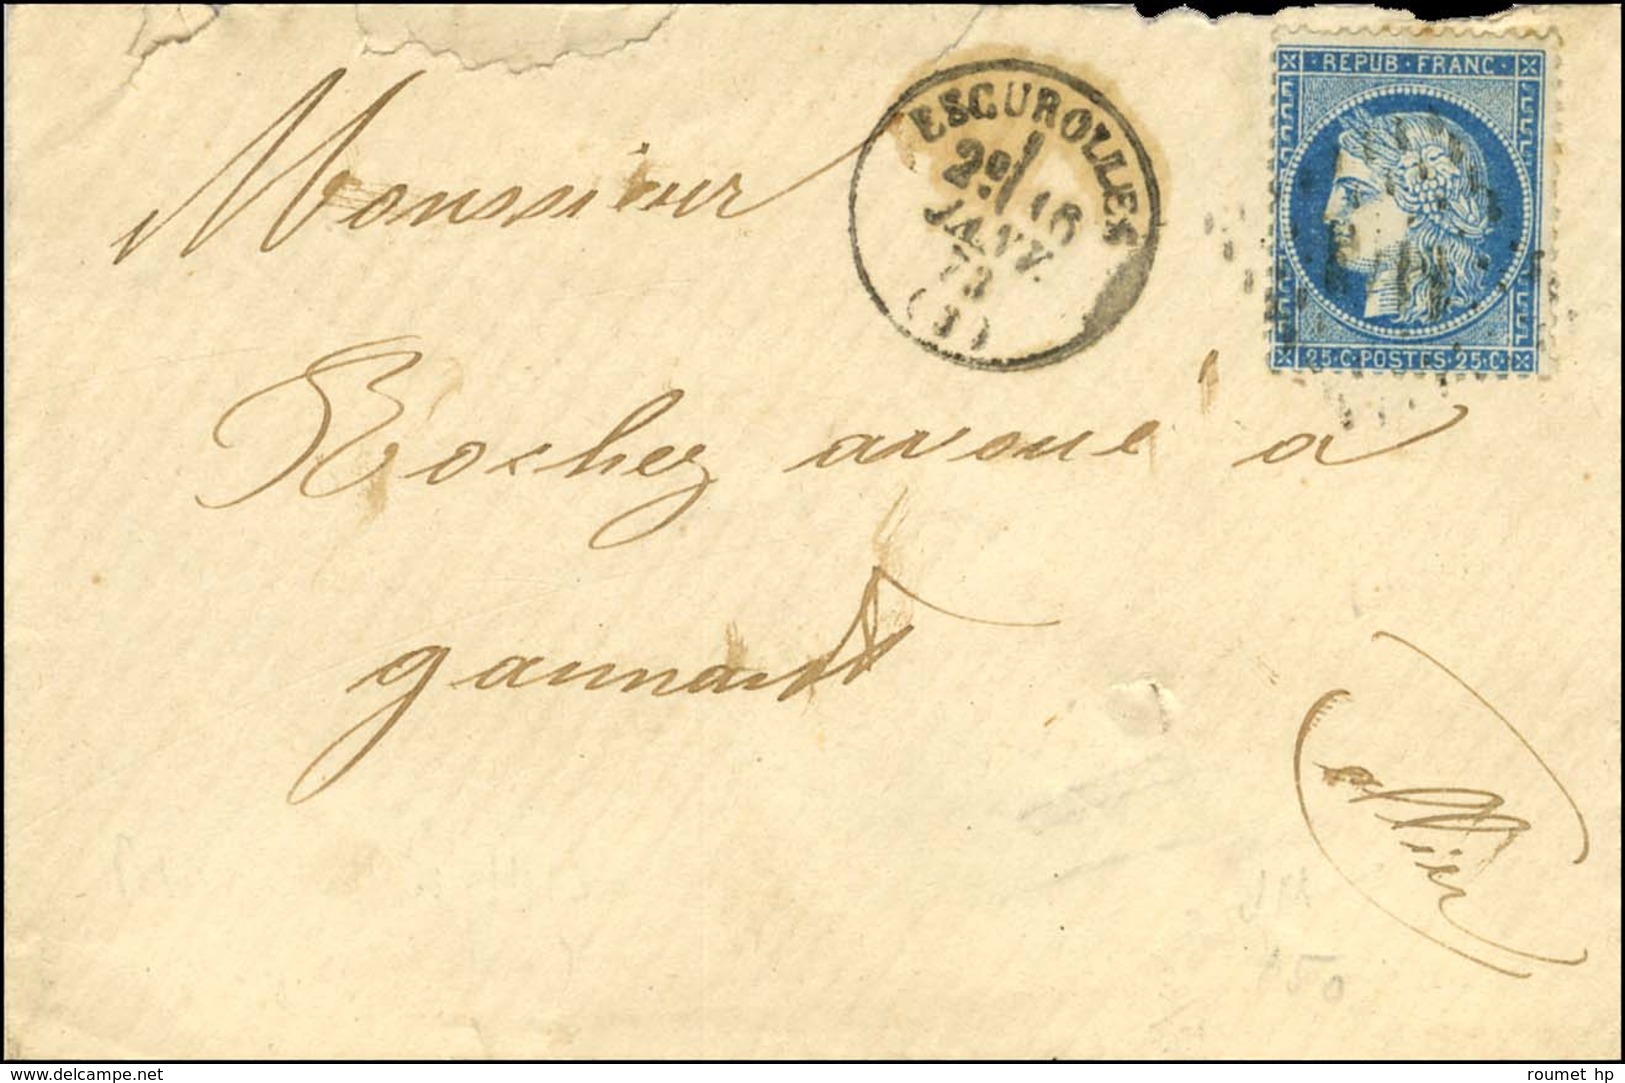 REPUB · FRANC
25 · C · POSTES · 25 · C
ESCUROLLES
2E/
16
JANV.
73
(3)
Monsieur
Rochez avoué à
gannat
allier
150
www.delcampe.net
roumet hp